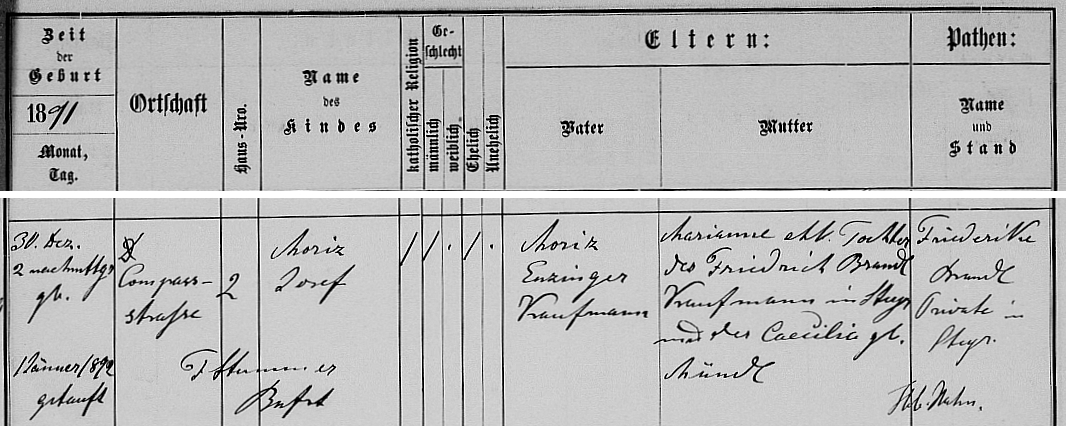 Zeit
der
Geburt
1891
Monat,
Tag.
Ortschaft
Haus-Nro.
Name
des
Kindes
katholischer Religion
Ge-
schlecht
männlich
weiblich
Ehelich
Unehelich
Eltern:
Vater
Mutter
Pathen:
Name
und
Stand
30. Dez.
2 nachmttgs
gb.
Compass-
strasse
2
Moriz
Josef
/ / . / .
Moriz
Enzinger
Kaufmann
Marianne ehl. Tochter
des Friedrich Brandl
Kaufmann in Steyr
und der Caecilia gb.
Mündl
Friederike
Brandl
Private in
Steyr.
1 Jänner 1892
getauft